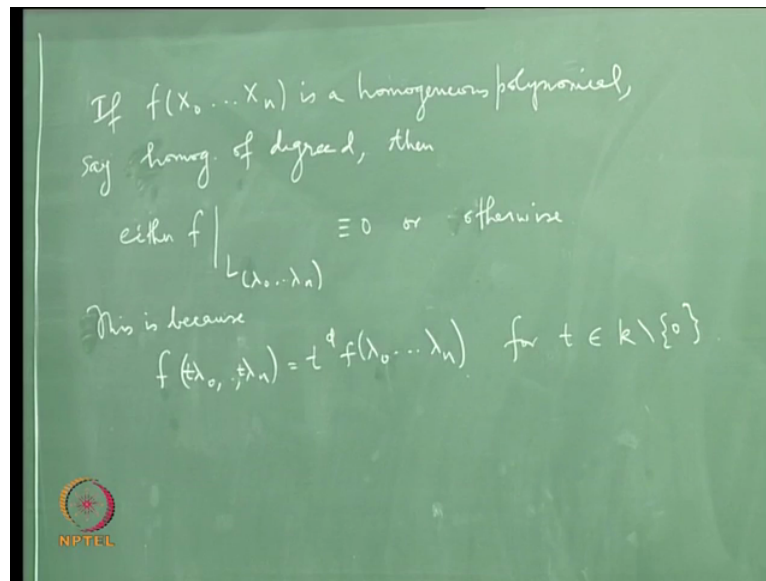 If f(X₀...Xₙ) is a homogeneous polynomical,
say homog. of degree d, then
either f|L(λ₀...λₙ) ≡ 0 or otherwise.
This is because
f(tλ₀, ,tλₙ) = tᵈ f(λ₀...λₙ) for t ∈ k\{0}.
NPTEL